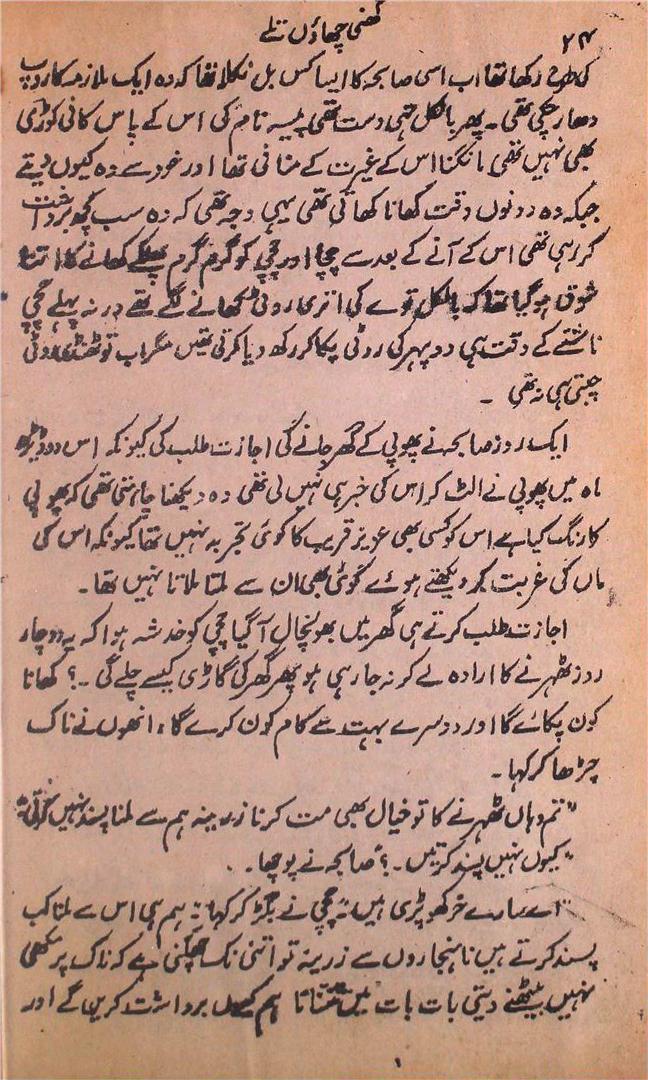 ۲۴
گھنی چھاؤں تلے
کی طرح رکھا تھا اب اسی صابحہ کا ایسا کس بل نکلا تھا کہ وہ ایک ملازمہ کا روپ
دھار چکی تھی ۔ پھر بالکل تہی دست تھی پیسہ نام کی اس کے پاس کانی کوڑی
بھی نہیں تھی مانگنا اس کے غیرت کے منافی تھا اور خود سے وہ کیوں دیتے
جبکہ وہ دونوں وقت کھانا کھاتی تھی یہی وجہ تھی کہ وہ سب کچھ برداشت
کر رہی تھی اس کے آنے کے بعد سے چچا اور چچی کو گرم گرم پھلکے کھانے کا اتنا
شوق ہو گیا تھا کہ بالکل توے کی اتری روٹی کھانے لگے تھے ورنہ پہلے چچی
ناشتے کے وقت ہی دوپہر کی روٹی پکا کر رکھ دیا کرتی تھیں مگر اب تو ٹھنڈی روٹی
چبتی ہی نہ تھی ۔
ایک روز صابحہ نے پھوپی کے گھر جانے کی اجازت طلب کی کیونکہ اس دو ڈیڑھ
ماہ میں پھوپی نے الٹ کر اس کی خبر ہی نہیں لی تھی وہ دیکھنا چاہتی تھی کہ پھوپی
کا رنگ کیا ہے اس کو کسی بھی عزیز قریب کا کوئی تجربہ نہیں تھا کیونکہ اس کی
ماں کی غربت کو دیکھتے ہوئے کوئی بھی ان سے ملتا ملاتا نہیں تھا ۔
اجازت طلب کرتے ہی گھر میں بھونچال آ گیا چچی کو خدشہ ہوا کہ یہ دو چار
روز ٹھہرنے کا ارادہ لے کر نہ جا رہی ہو پھر گھر کی گاڑی کیسے چلے گی ۔؟ کھانا
کون پکائے گا اور دوسرے بہت سے کام کون کرے گا، انھوں نے ناک
چڑھا کر کہا ۔
"تم وہاں ٹھہرنے کا تو خیال بھی مت کرنا زرینہ ہم سے ملنا پسند نہیں کرتی"
"کیوں نہیں پسند کرتیں ۔؟" صابحہ نے پوچھا ۔
"اے سارے خر کھوپڑی ہیں" چچی نے بگڑ کر کہا" ہم ہی اس سے ملنا کب
پسند کرتے ہیں ناہنجاروں سے زرینہ تو اتنی نک چپکنی ہے کہ ناک پر مکھی
نہیں بیٹھنے دیتی بات بات میں تنتنانا ہم کیوں برداشت کریں گے اور